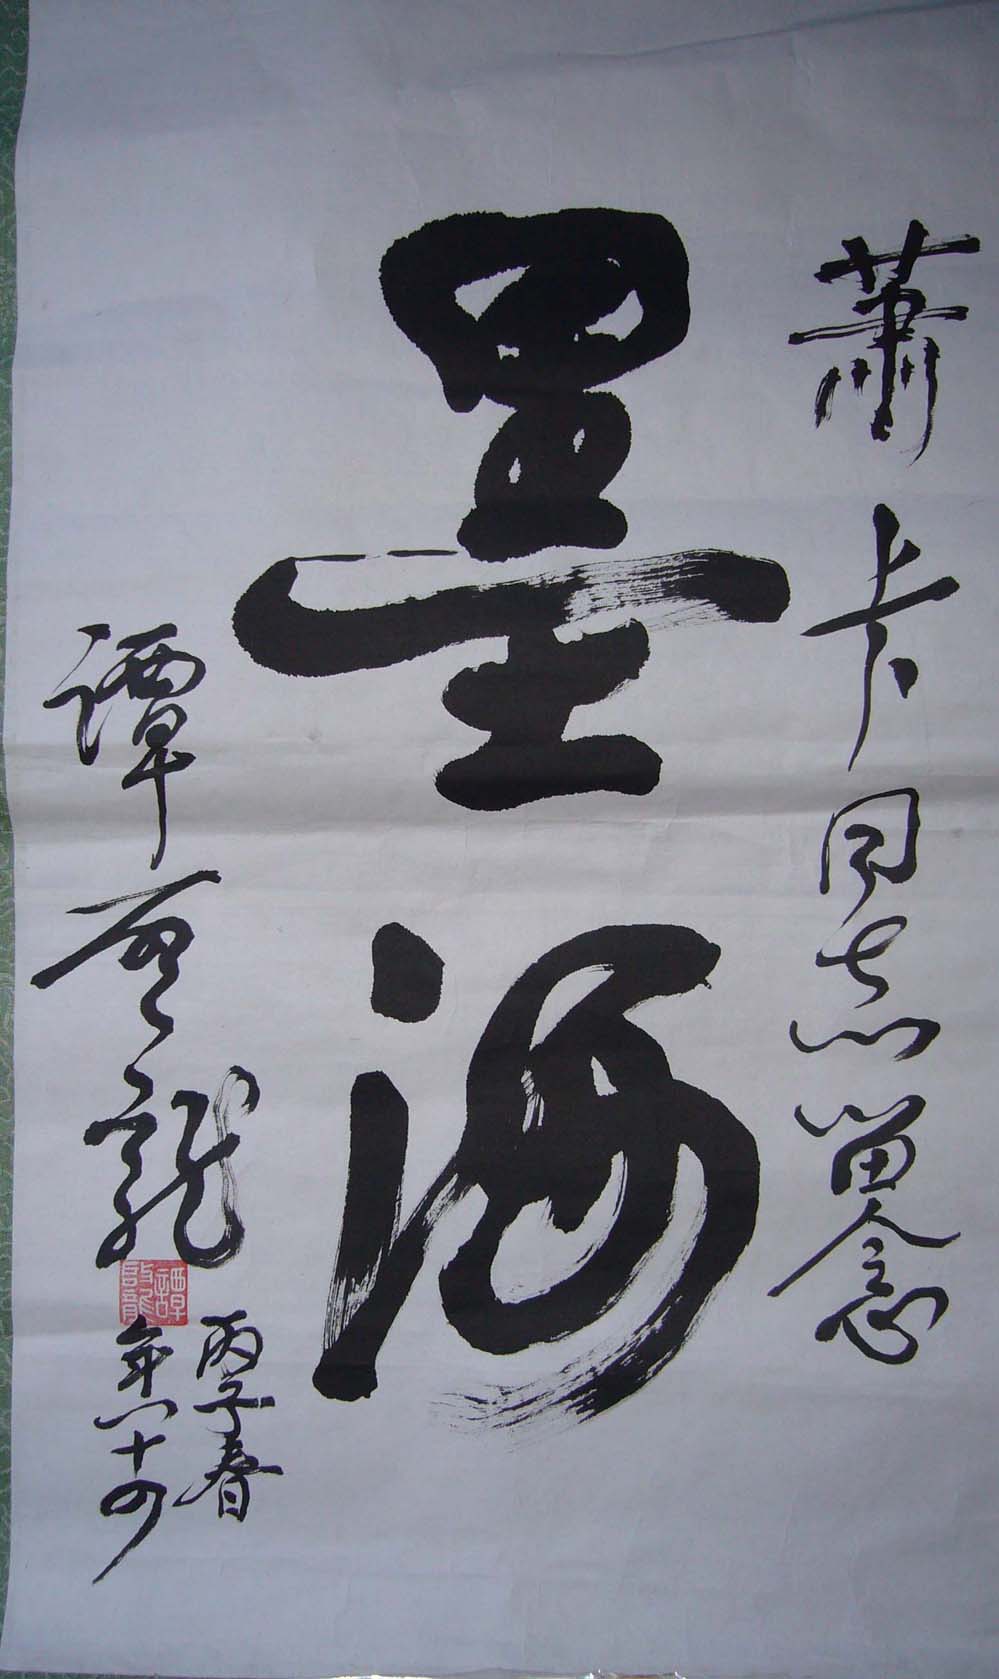 蕭卡同志留念
墨海
譚啓龍
丙子春
年八十四
譚啟龍